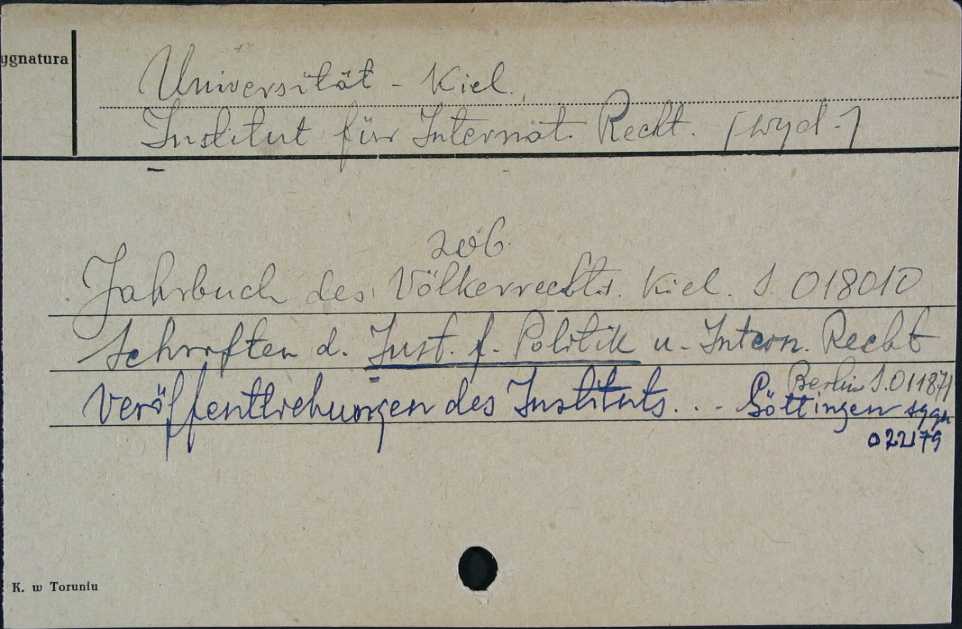 ygnatura
Universität - Kiel.
Institut für Internat. Recht. [wyd.]
zob.
Jahrbuch des Völkerrechts. Kiel. S. 018010
Schriften d. Inst. f. Politik u. Intern. Recht
Berlin S.011871
Veröffentlichungen des Instituts... Göttingen sygn
022179
K. w Toruniu